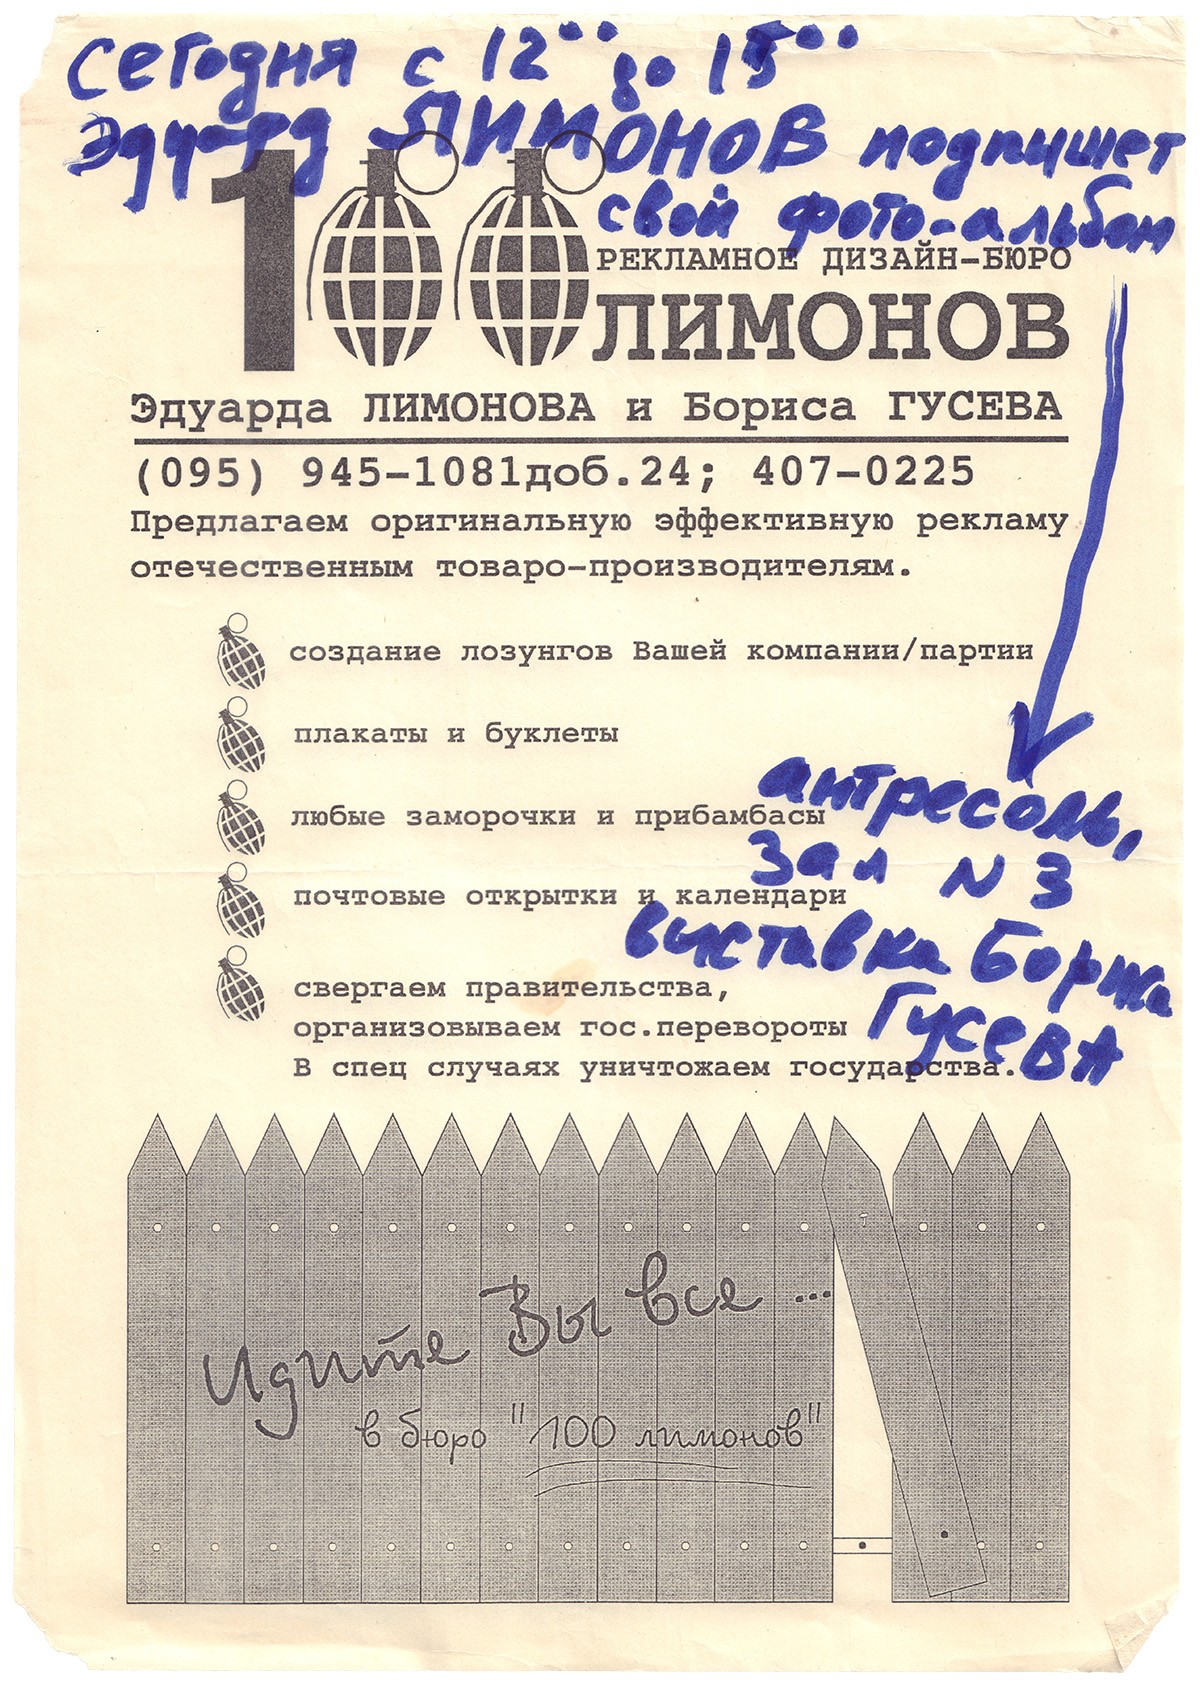 Сегодня с 12⁰⁰ до 15⁰⁰
Эдуард ЛИМОНОВ подпишет
свой фото-альбом
100
РЕКЛАМНОЕ ДИЗАЙН-БЮРО
ЛИМОНОВ
Эдуарда ЛИМОНОВА и Бориса ГУСЕВА
(095) 945-1081доб.24; 407-0225
Предлагаем оригинальную эффективную рекламу
отечественным товаро-производителям.
создание лозунгов Вашей компании/партии
плакаты и буклеты
любые заморочки и прибамбасы
почтовые открытки и календари
свергаем правительства,
организовываем гос.перевороты
В спец случаях уничтожаем государства.
антресоль,
Зал N 3
выставка Бориса
ГусевА
Идите Вы все ...
в бюро "100 лимонов"